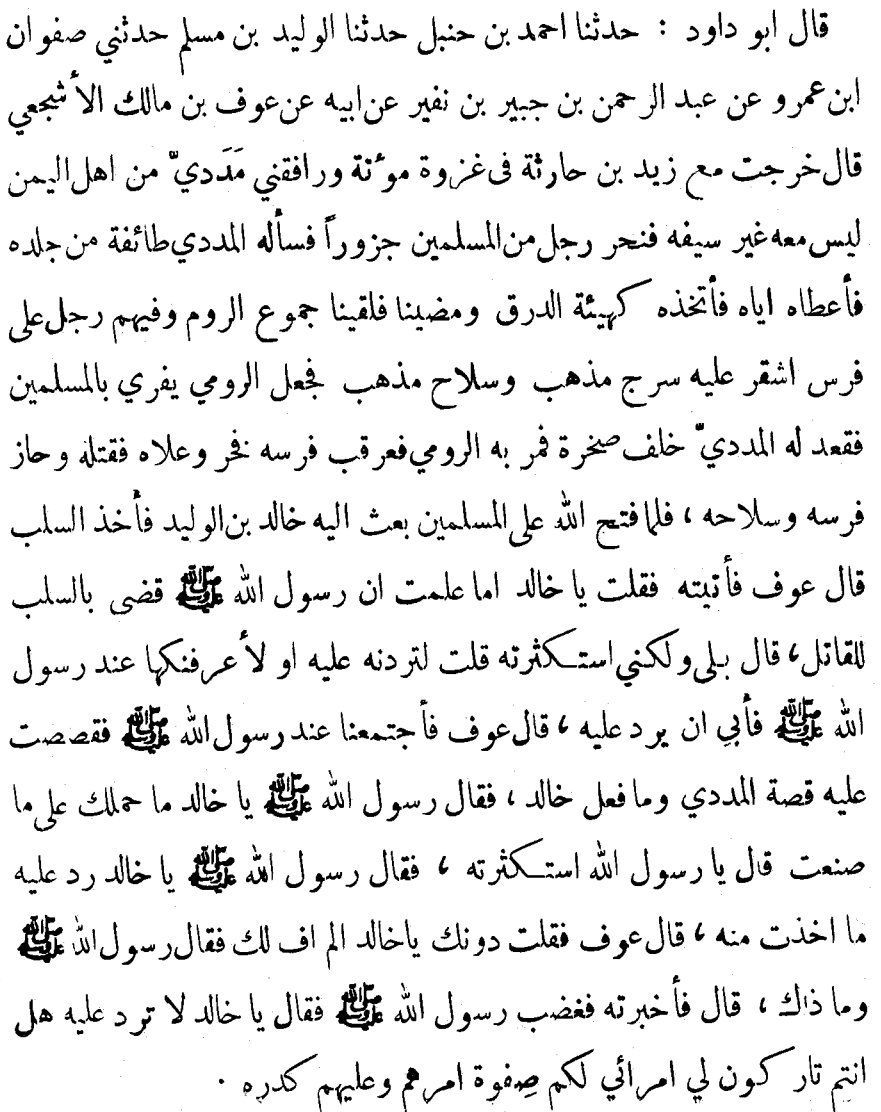 قال ابو داود : حدثنا احمد بن حنبل حدثنا الوليد بن مسلم حدثني صفوان
ابن عمرو عن عبد الرحمن بن جبير بن نفير عن ابيه عن عوف بن مالك الأشجعي
قال خرجت مع زيد بن حارثة فى غزوة موٴتة ورافقني مَدَديّ من اهل اليمن
ليس معه غير سيفه فنحر رجل من المسلمين جزوراً فسأله المددي طائفة من جلده
فأعطاه اياه فأتخذه كهيئة الدرق ومضينا فلقينا جموع الروم وفيهم رجل على
فرس اشقر عليه سرج مذهب وسلاح مذهب فجعل الرومي يفري بالمسلمين
فقعد له المدديّ خلف صخرة فمر به الرومي فعرقب فرسه فخر وعلاه فقتله وحاز
فرسه وسلاحه ، فلما فتح الله على المسلمين بعث اليه خالد بن الوليد فأخذ السلب
قال عوف فأتيته فقلت يا خالد اما علمت ان رسول الله ﷺ قضى بالسلب
للقاتل ، قال بلى ولكني استكثرته قلت لتردنه عليه او لأعرفنكها عند رسول
الله ﷺ فأبي ان يرد عليه ، قال عوف فأجتمعنا عند رسول الله ﷺ فقصصت
عليه قصة المددي وما فعل خالد ، فقال رسول الله ﷺ يا خالد ما حملك على ما
صنعت قال يا رسول الله استكثرته ، فقال رسول الله ﷺ يا خالد رد عليه
ما اخذت منه ، قال عوف فقلت دونك ياخالد الم اف لك فقال رسول الله ﷺ
وما ذاك ، قال فأخبرته فغضب رسول الله ﷺ فقال يا خالد لا ترد عليه هل
انتم تاركون لي امرائي لكم صِفوة امرهم وعليهم كدره .